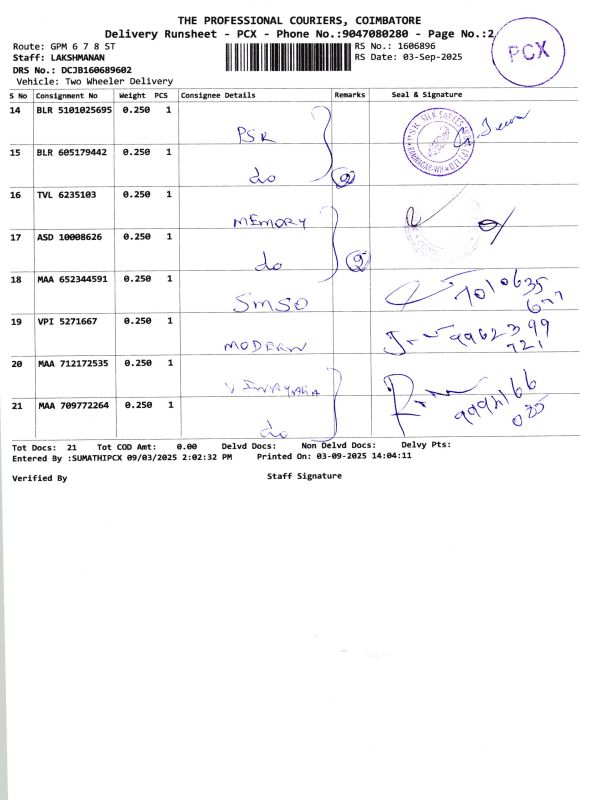 THE PROFESSIONAL COURIERS, COIMBATORE
Delivery Runsheet - PCX - Phone No.:9047080280 - Page No.:2
PCX
Route: GPM 6 7 8 ST
RS No.: 1606896
Staff: LAKSHMANAN
RS Date: 03-Sep-2025
DRS No.: DCJB160689602
Vehicle: Two Wheeler Delivery
S No Consignment No Weight PCS Consignee Details Remarks Seal & Signature
14 BLR 5101025695 0.250 1 PSR
15 BLR 605179442 0.250 1 do 2
16 TVL 6235103 0.250 1 MEMORY
17 ASD 10008626 0.250 1 do 2
18 MAA 652344591 0.250 1 SMSO
19 VPI 5271667 0.250 1 MODERN
20 MAA 712172535 0.250 1
21 MAA 709772264 0.250 1 do
Tot Docs: 21 Tot COD Amt: 0.00 Delvd Docs: Non Delvd Docs: Delvy Pts:
Entered By :SUMATHIPCX 09/03/2025 2:02:32 PM Printed On: 03-09-2025 14:04:11
Verified By Staff Signature